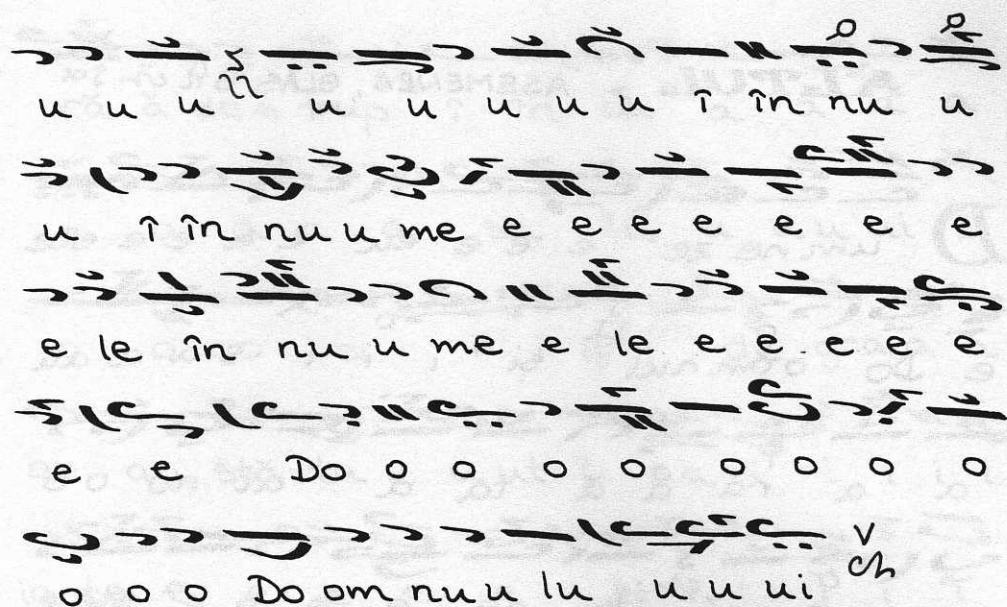 u u u u u u u u î în nu u
u î în nu u me e e e e e e e
e le în nu u me e le e e e e e
e e Do o o o o o o o o
o o o Do om nu u lu u u ui